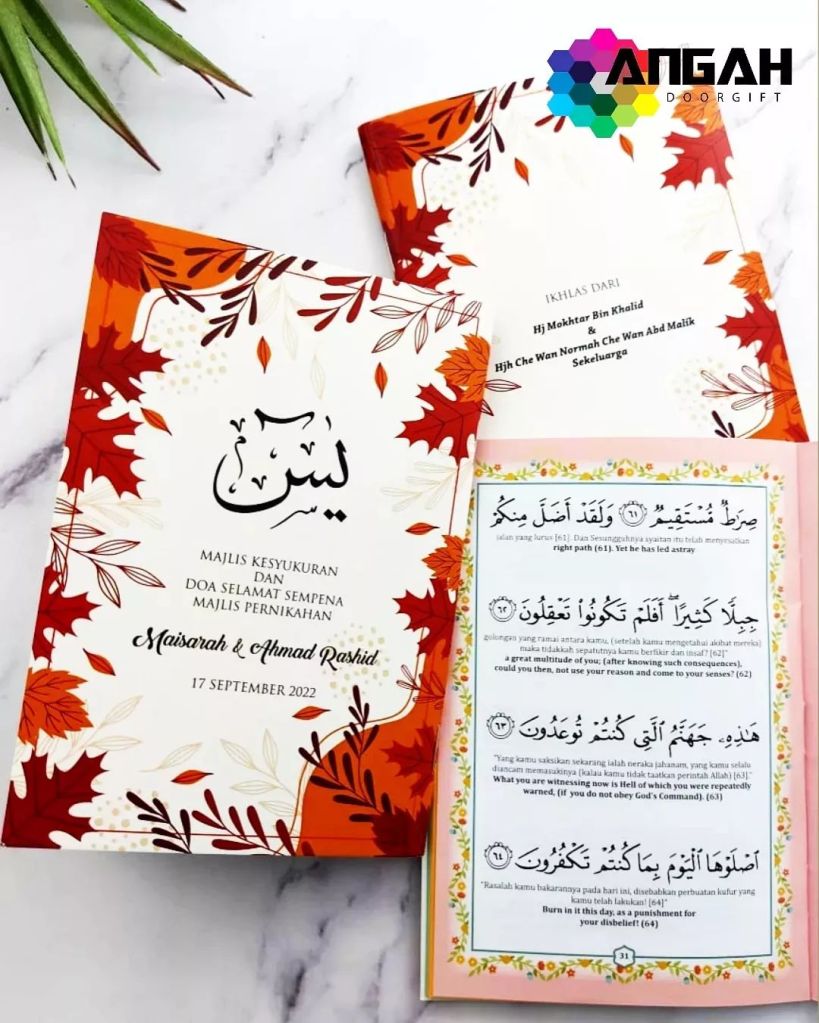 ANGAH
DOORGIFT
IKHLAS DARI
Hj Mokhtar Bin Khalid
&
Hjh Che Wan Normah Che Wan Abd Malik
Sekeluarga
يس
MAJLIS KESYUKURAN
DAN
DOA SELAMAT SEMPENA
MAJLIS PERNIKAHAN
Maisarah & Ahmad Rashid
17 SEPTEMBER 2022
صِرَٰطٌ مُّسْتَقِيمٌ ٦١ وَلَقَدْ أَضَلَّ مِنكُمْ
jalan yang lurus [61]. Dan Sesungguhnya syaitan itu telah menyesatkan
right path (61). Yet he has led astray
جِبِلًّا كَثِيرًا ۖ أَفَلَمْ تَكُونُوا۟ تَعْقِلُونَ ٦٢
golongan yang ramai antara kamu, (setelah kamu mengetahui akibat mereka)
maka tidakkah sepatutnya kamu berfikir dan insaf? [62]"
a great multitude of you; (after knowing such consequences),
could you then, not use your reason and come to your senses? (62)
هَـٰذِهِۦ جَهَنَّمُ ٱلَّتِى كُنتُمْ تُوعَدُونَ ٦٣
"Yang kamu saksikan sekarang ialah neraka jahanam, yang kamu selalu
diancam memasukinya (kalau kamu tidak taatkan perintah Allah) [63]."
What you are witnessing now is Hell of which you were repeatedly
warned, (if you do not obey God's Command). (63)
ٱصْلَوْهَا ٱلْيَوْمَ بِمَا كُنتُمْ تَكْفُرُونَ ٦٤
"Rasalah kamu bakarannya pada hari ini, disebabkan perbuatan kufur yang
kamu telah lakukan! [64]"
Burn in it this day, as a punishment for
your disbelief! (64)
31